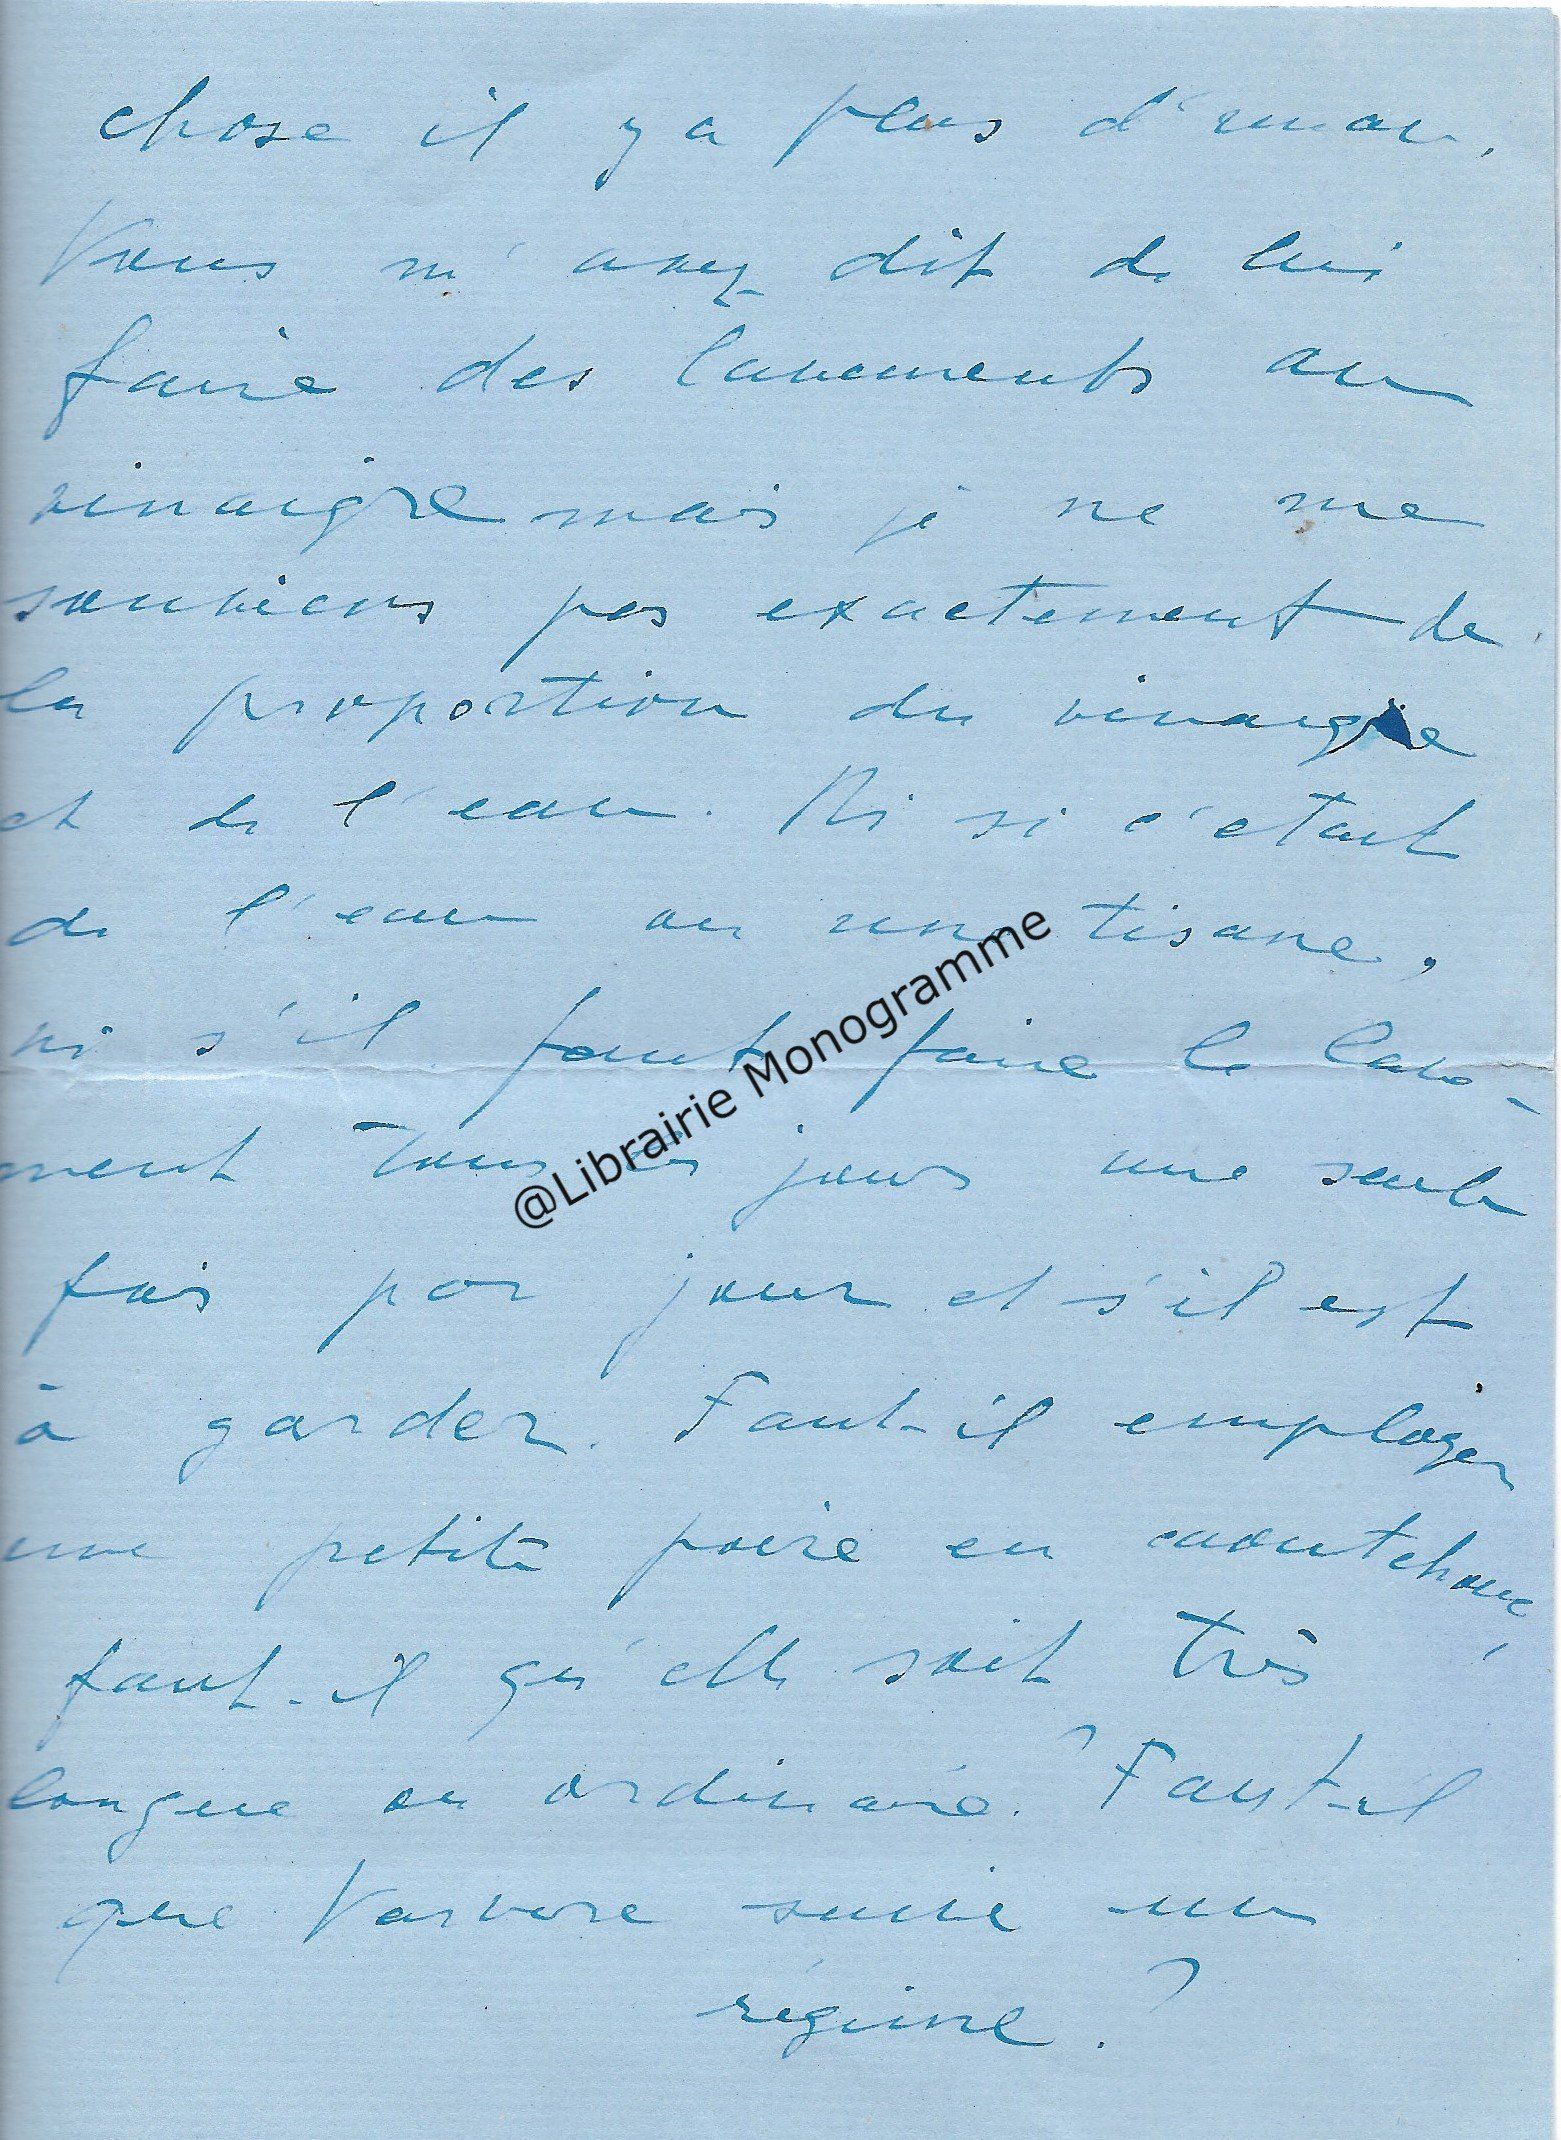 chose il y a plus d'un an.
Vous m'avez dit de lui
faire des lavements au
vinaigre mais je ne me
souviens pas exactement de
la proportion du vinaigre
et de l'eau. Ni si c'etait
de l'eau ou une tisane,
ni s'il faut faire le lave-
ment tous les jours une seule
fois par jour et s'il est
à garder. Faut-il employer
une petite poire en caoutchouc,
faut-il qu'elle soit très
longue ou ordinaire? Faut-il
que Varvara suive un
régime?
@Librairie Monogramme